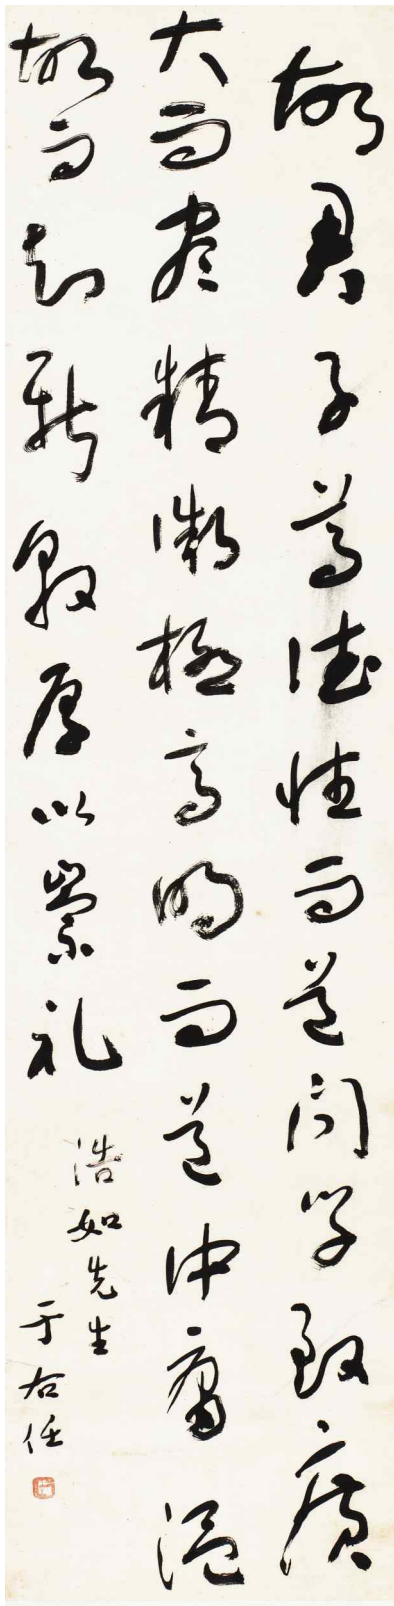 故君子尊德性而道问学致广
大而尽精微极高明而道中庸温
故而知新敦厚以崇礼
浩如先生
于右任